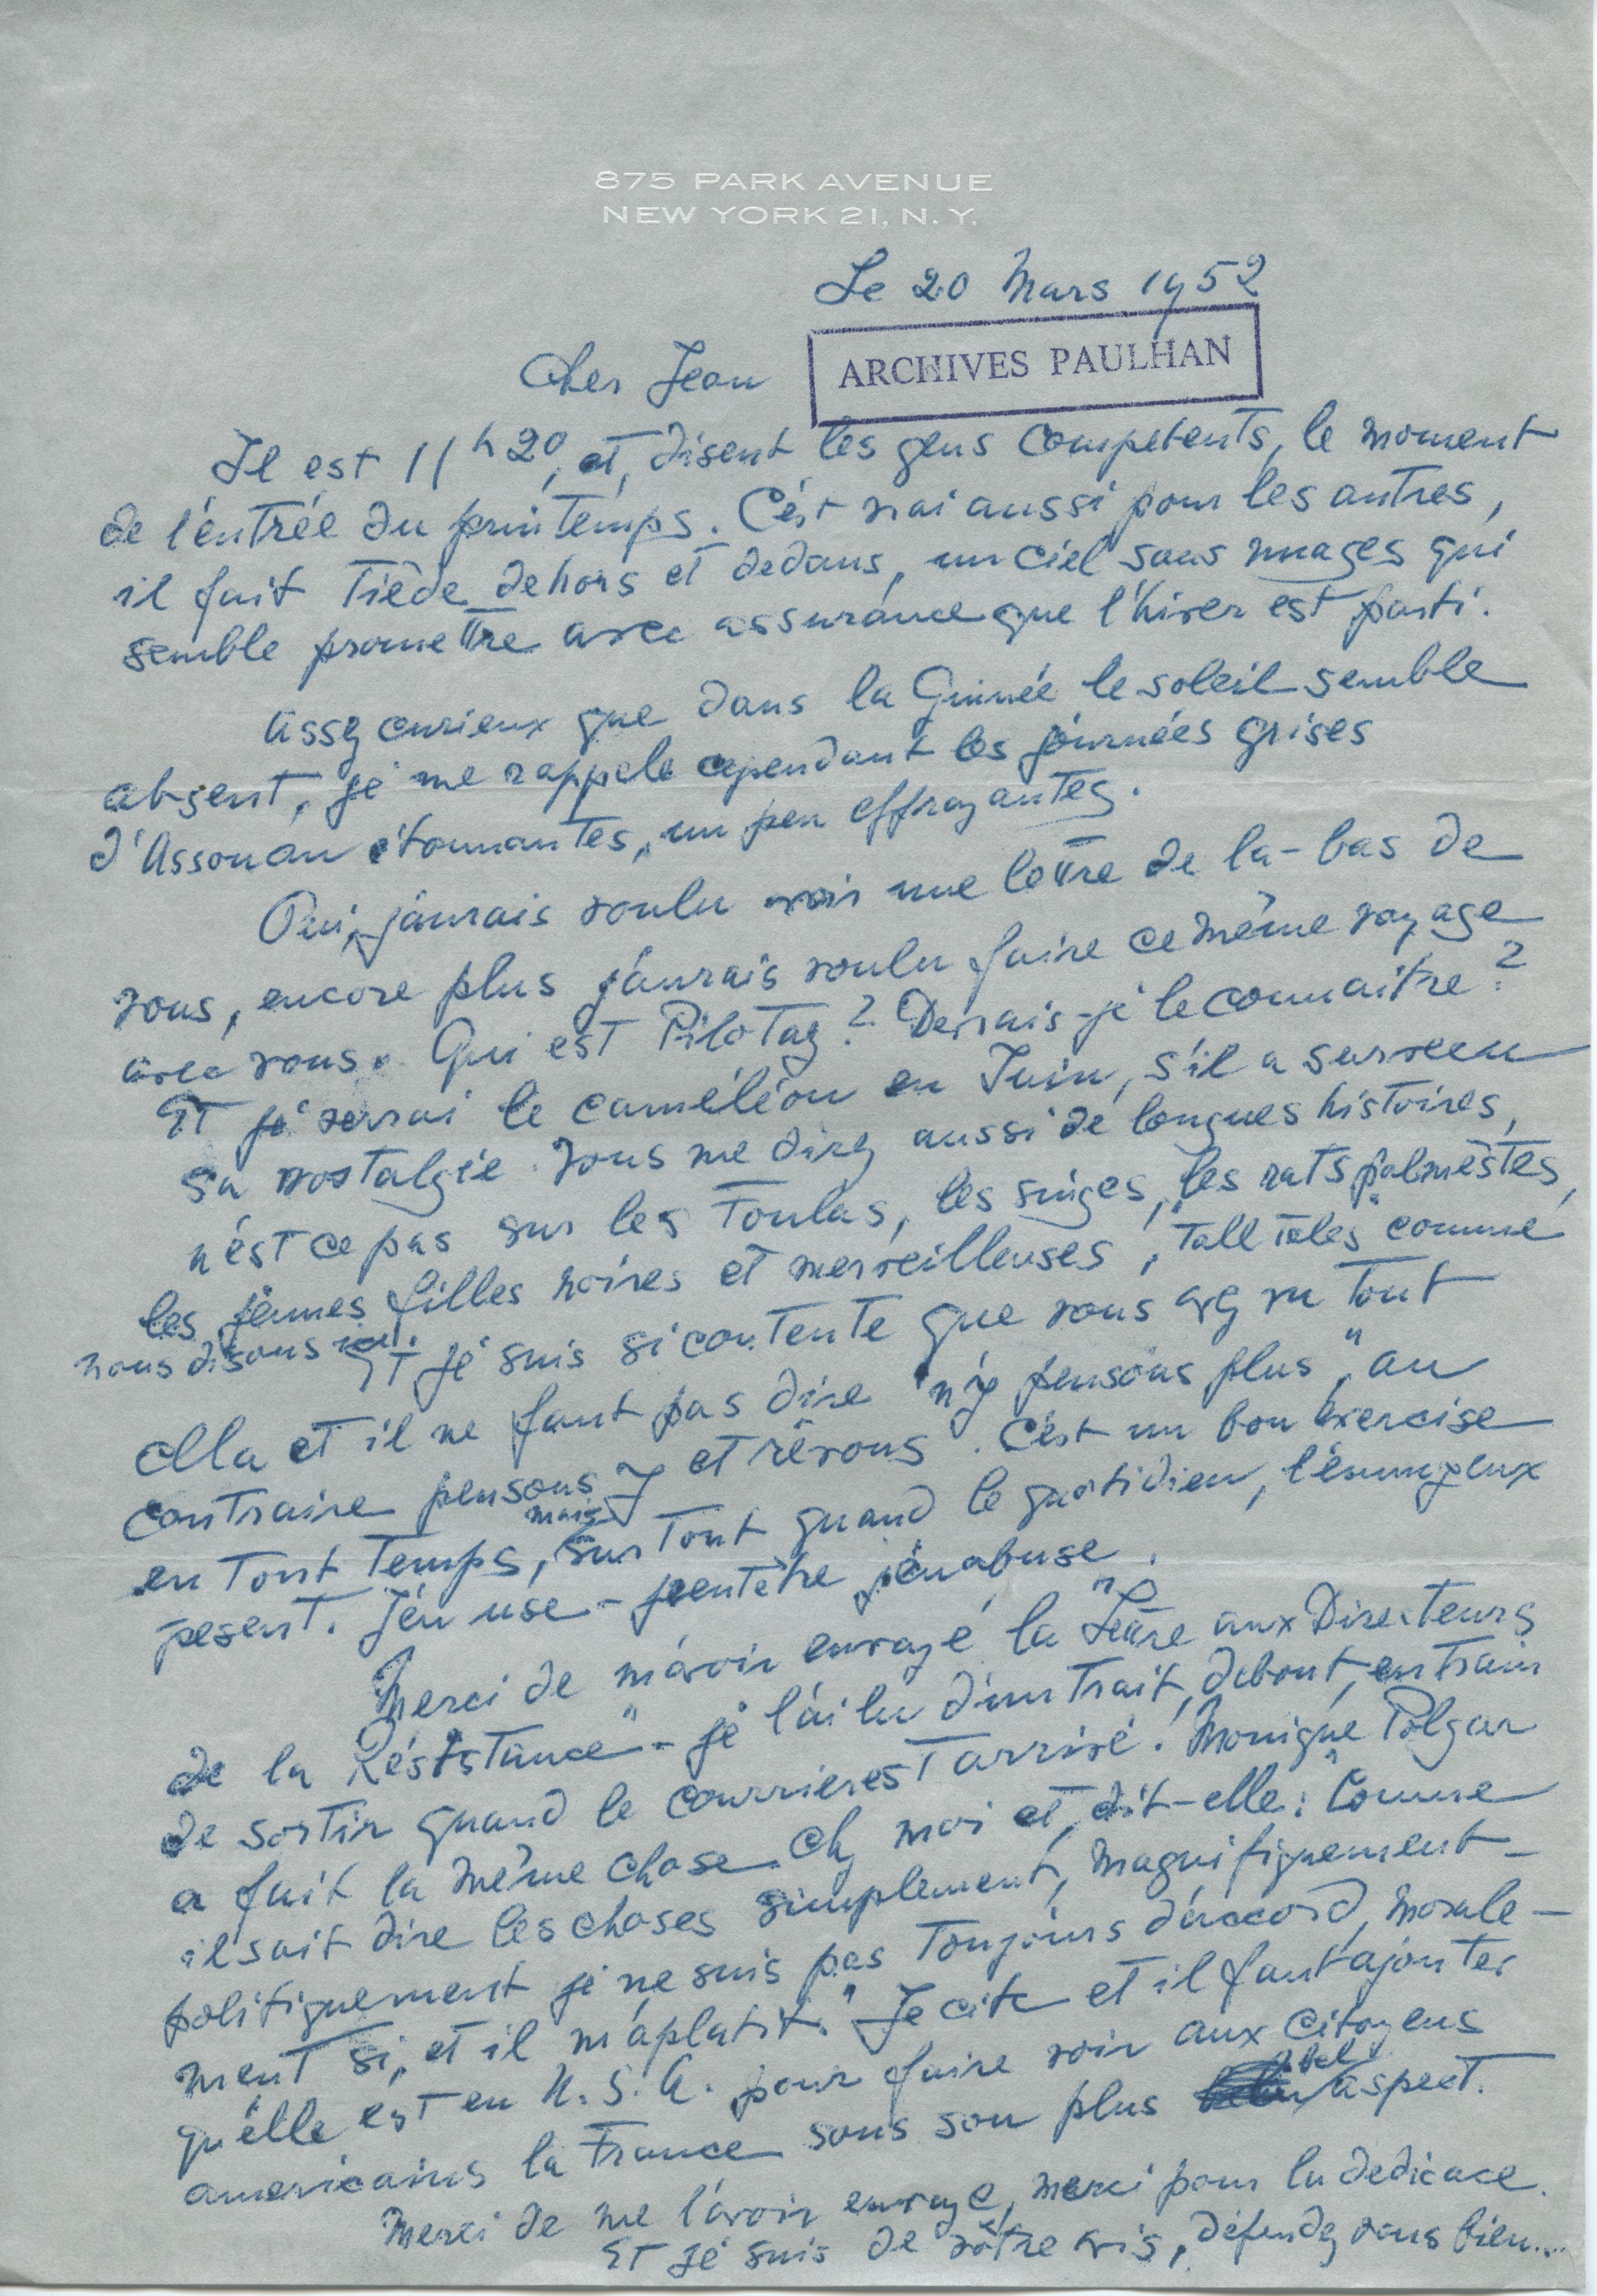 875 PARK AVENUE
NEW YORK 21, N.Y.
Le 20 Mars 1952
ARCHIVES PAULHAN
Cher Jean
Il est 11h20, et, disent les gens competents, le moment
de l'entrée du printemps. C'est vrai aussi pour les autres,
il fait tiède dehors et dedans, un ciel sans nuages qui
semble promettre avec assurance que l'hiver est parti.
Assez curieux que dans la Guinée le soleil semble
absent, je me rappele cependant les journées grises
d'Assouan étonnantes, un peu effrayantes.
Oui, j'aurais voulu avoir une lettre de la-bas de
vous, encore plus j'aurais voulu faire ce même voyage
avec vous. Qui est Pilotaz? Devrais-je le connaitre?
Et je verrai le caméléon en Juin, s'il a survecu
sa nostalgie. Vous me direz aussi de longues histoires,
n'est ce pas sur les Foulas, les singes, les rats palmestes,
les jeunes filles noires et merveilleuses, "tall tales" comme
nous disons ici. Et je suis si contente que vous avez vu tout
cela et il ne faut pas dire "n'y pensons plus", au
contraire pensons y et rêvons. C'est un bon exercise
en tout temps, mais surtout quand le quotidien, l'ennuyeux
pesent. J'en use - peutêtre j'en abuse.
Merci de m'avoir envoyé la "Lettre aux Directeurs
de la Résistance" - je l'ai lu d'un trait, debout, en train
de sortir quand le courrier est arrivé. Monique Polgar
a fait la même chose chez moi et, dit-elle: "Comme
il sait dire les choses simplement, magnifiquement -
politiquement je ne suis pas toujours d'accord, morale-
ment si, et il m'aplatit." Je cite et il faut ajouter
qu'elle est en U.S.A. pour faire voir aux citoyens
americains la France sous son plus bel aspect.
Merci de me l'avoir envoyé, merci pour la dedicace.
Et je suis de vôtre avis, défendez vous bien....